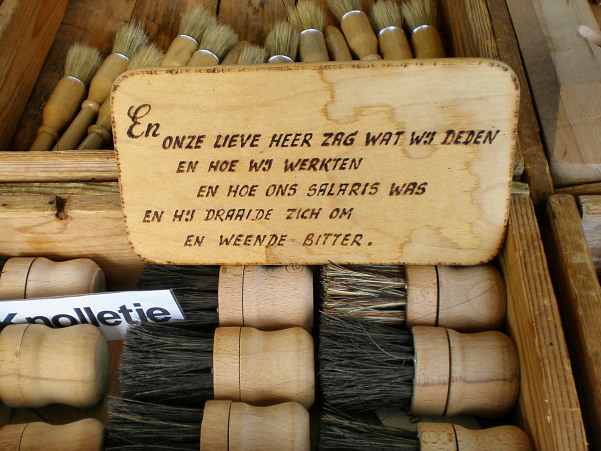 En ONZE LIEVE HEER ZAG WAT WIJ DEDEN
EN HOE WIJ WERKTEN
EN HOE ONS SALARIS WAS
EN HIJ DRAAIDE ZICH OM
EN WEENDE BITTER.
polletje